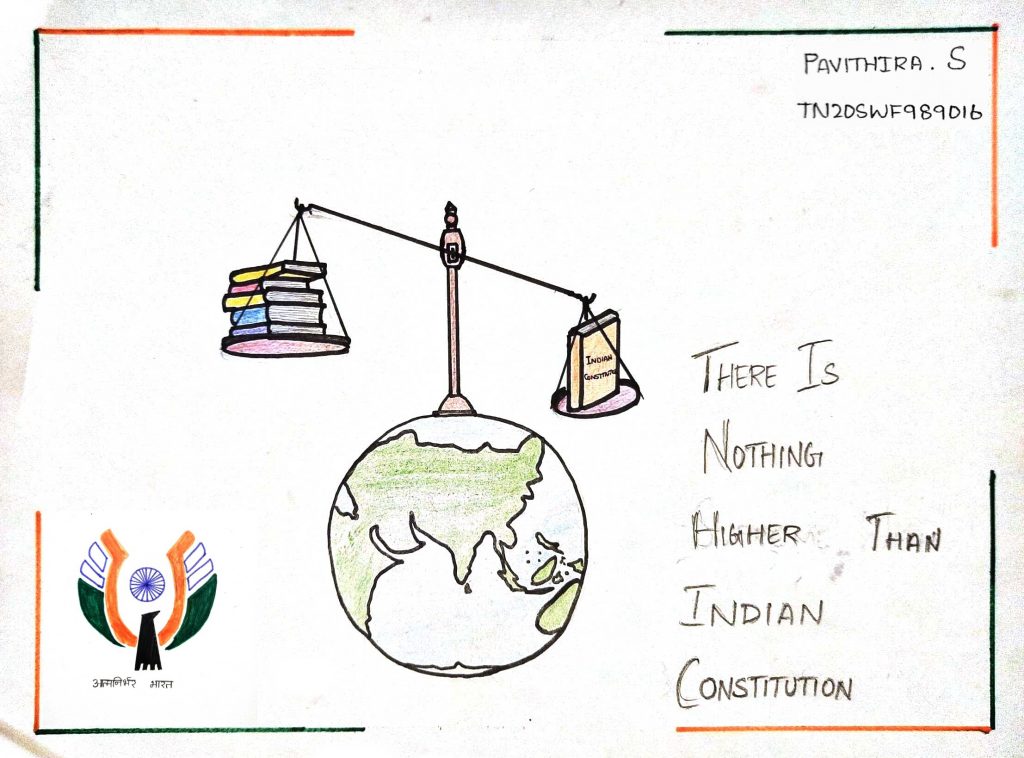 PAVITHIRA. S
TN20SWF989016
INDIAN
CONSTITUTIO
THERE IS
NOTHING
HIGHER THAN
INDIAN
CONSTITUTION
आत्मनिर्भर भारत